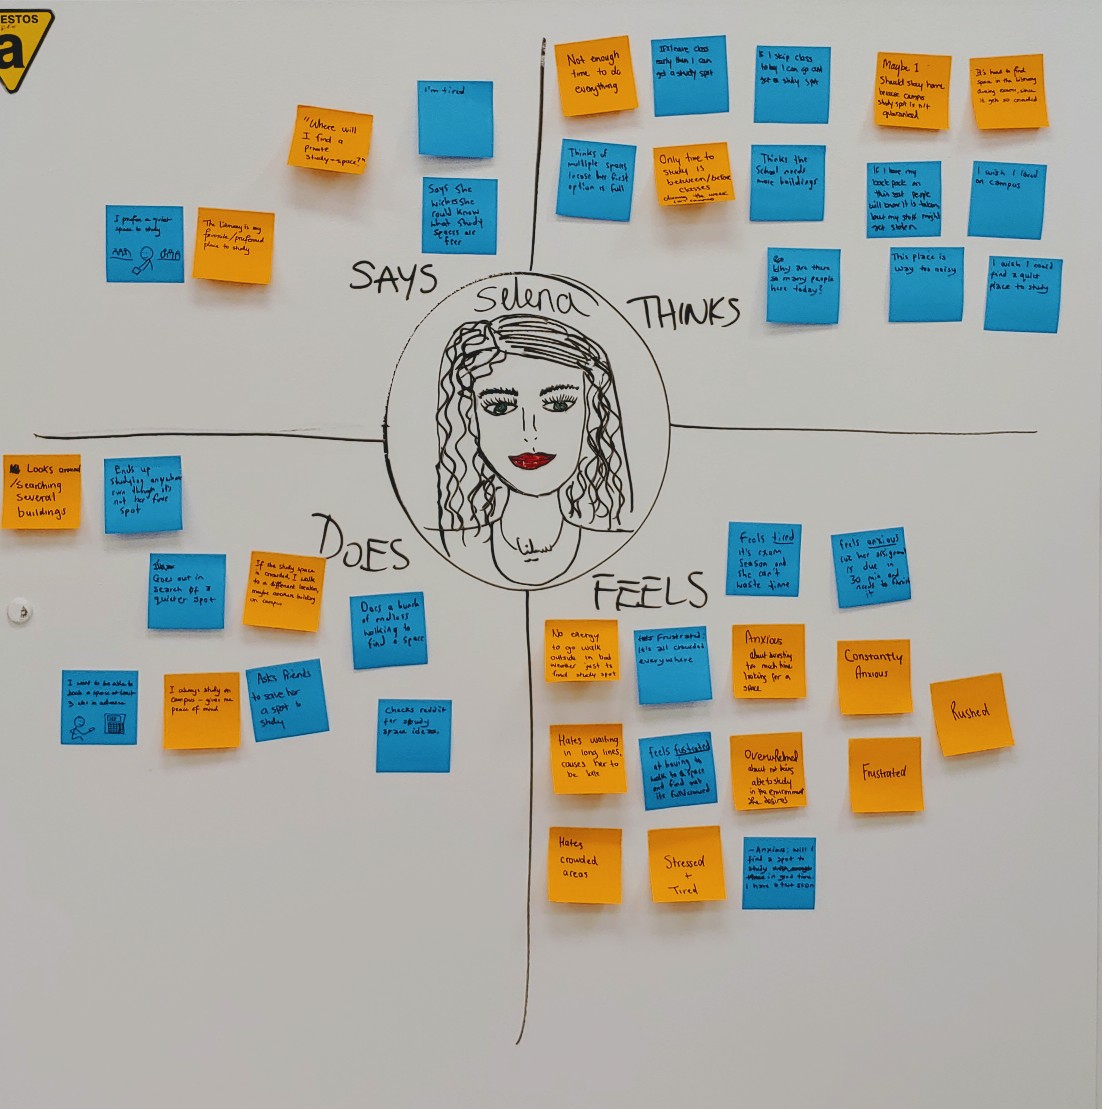 ESTOS
a
"Where will
I find a
private
study-space?"
I'm tired
Says she
wishes she
could know
what study
spaces are
free
I prefer a quiet
space to study
The library is my
favorite/preferred
place to study
SAYS
Not enough
time to do
everything
If I leave class
early then I can
get a study spot
If I skip class
today I can go and
get a study spot
Maybe I
should stay home
because campus
study spot is not
guaranteed
It's hard to find
space in the library
during exams, since
it gets so crowded
Thinks of
multiple spaces
incase her first
option is full
Only time to
study is
between/before
classes
during the week
Thinks the
School needs
more buildings
If I leave my
backpack on
this seat people
will know it is taken,
but my stuff might
get stolen
I wish I lived
on campus
Why are there
so many people
here today?
This place is
way too noisy
I wish I could
find a quiet
place to study
THINKS
Selena
Looks around
/Searching
several
buildings
Ends up
studying anywhere
even though it's
not her fave
spot
Goes out in
search of a
quieter spot
If the study space
is crowded, I walk
to a different location,
maybe another building
on campus
Does a bunch
of endless
walking to
find a space
I want to be able to
book a space at least
in advance
I always study on
campus - gives me
peace of mind
Asks friends
to save her
a spot to
study
Checks reddit
for study
space ideas.
DOES
FEELS
Feels tired
it's exam
season and
she can't
waste time
feels anxious
cuz her assignment
is due in
30 min and
needs to finish
it
No energy
to go walk
outside in bad
weather just to
find study spot
Frustrated:
it's all crowded
everywhere
Anxious
about wasting
too much time
looking for a
space
Constantly
Anxious
Rushed
Hates waiting
in long lines,
causes her to
be late
feels frustrated
at having to
walk to a space
and find out
its full/crowded
Overwhelmed
about not being
able to study
in the environment
she desires
Frustrated
Hates
crowded
areas
Stressed
+
Tired
- Anxious: will I
find a spot to
study
in good time.
I have a test soon